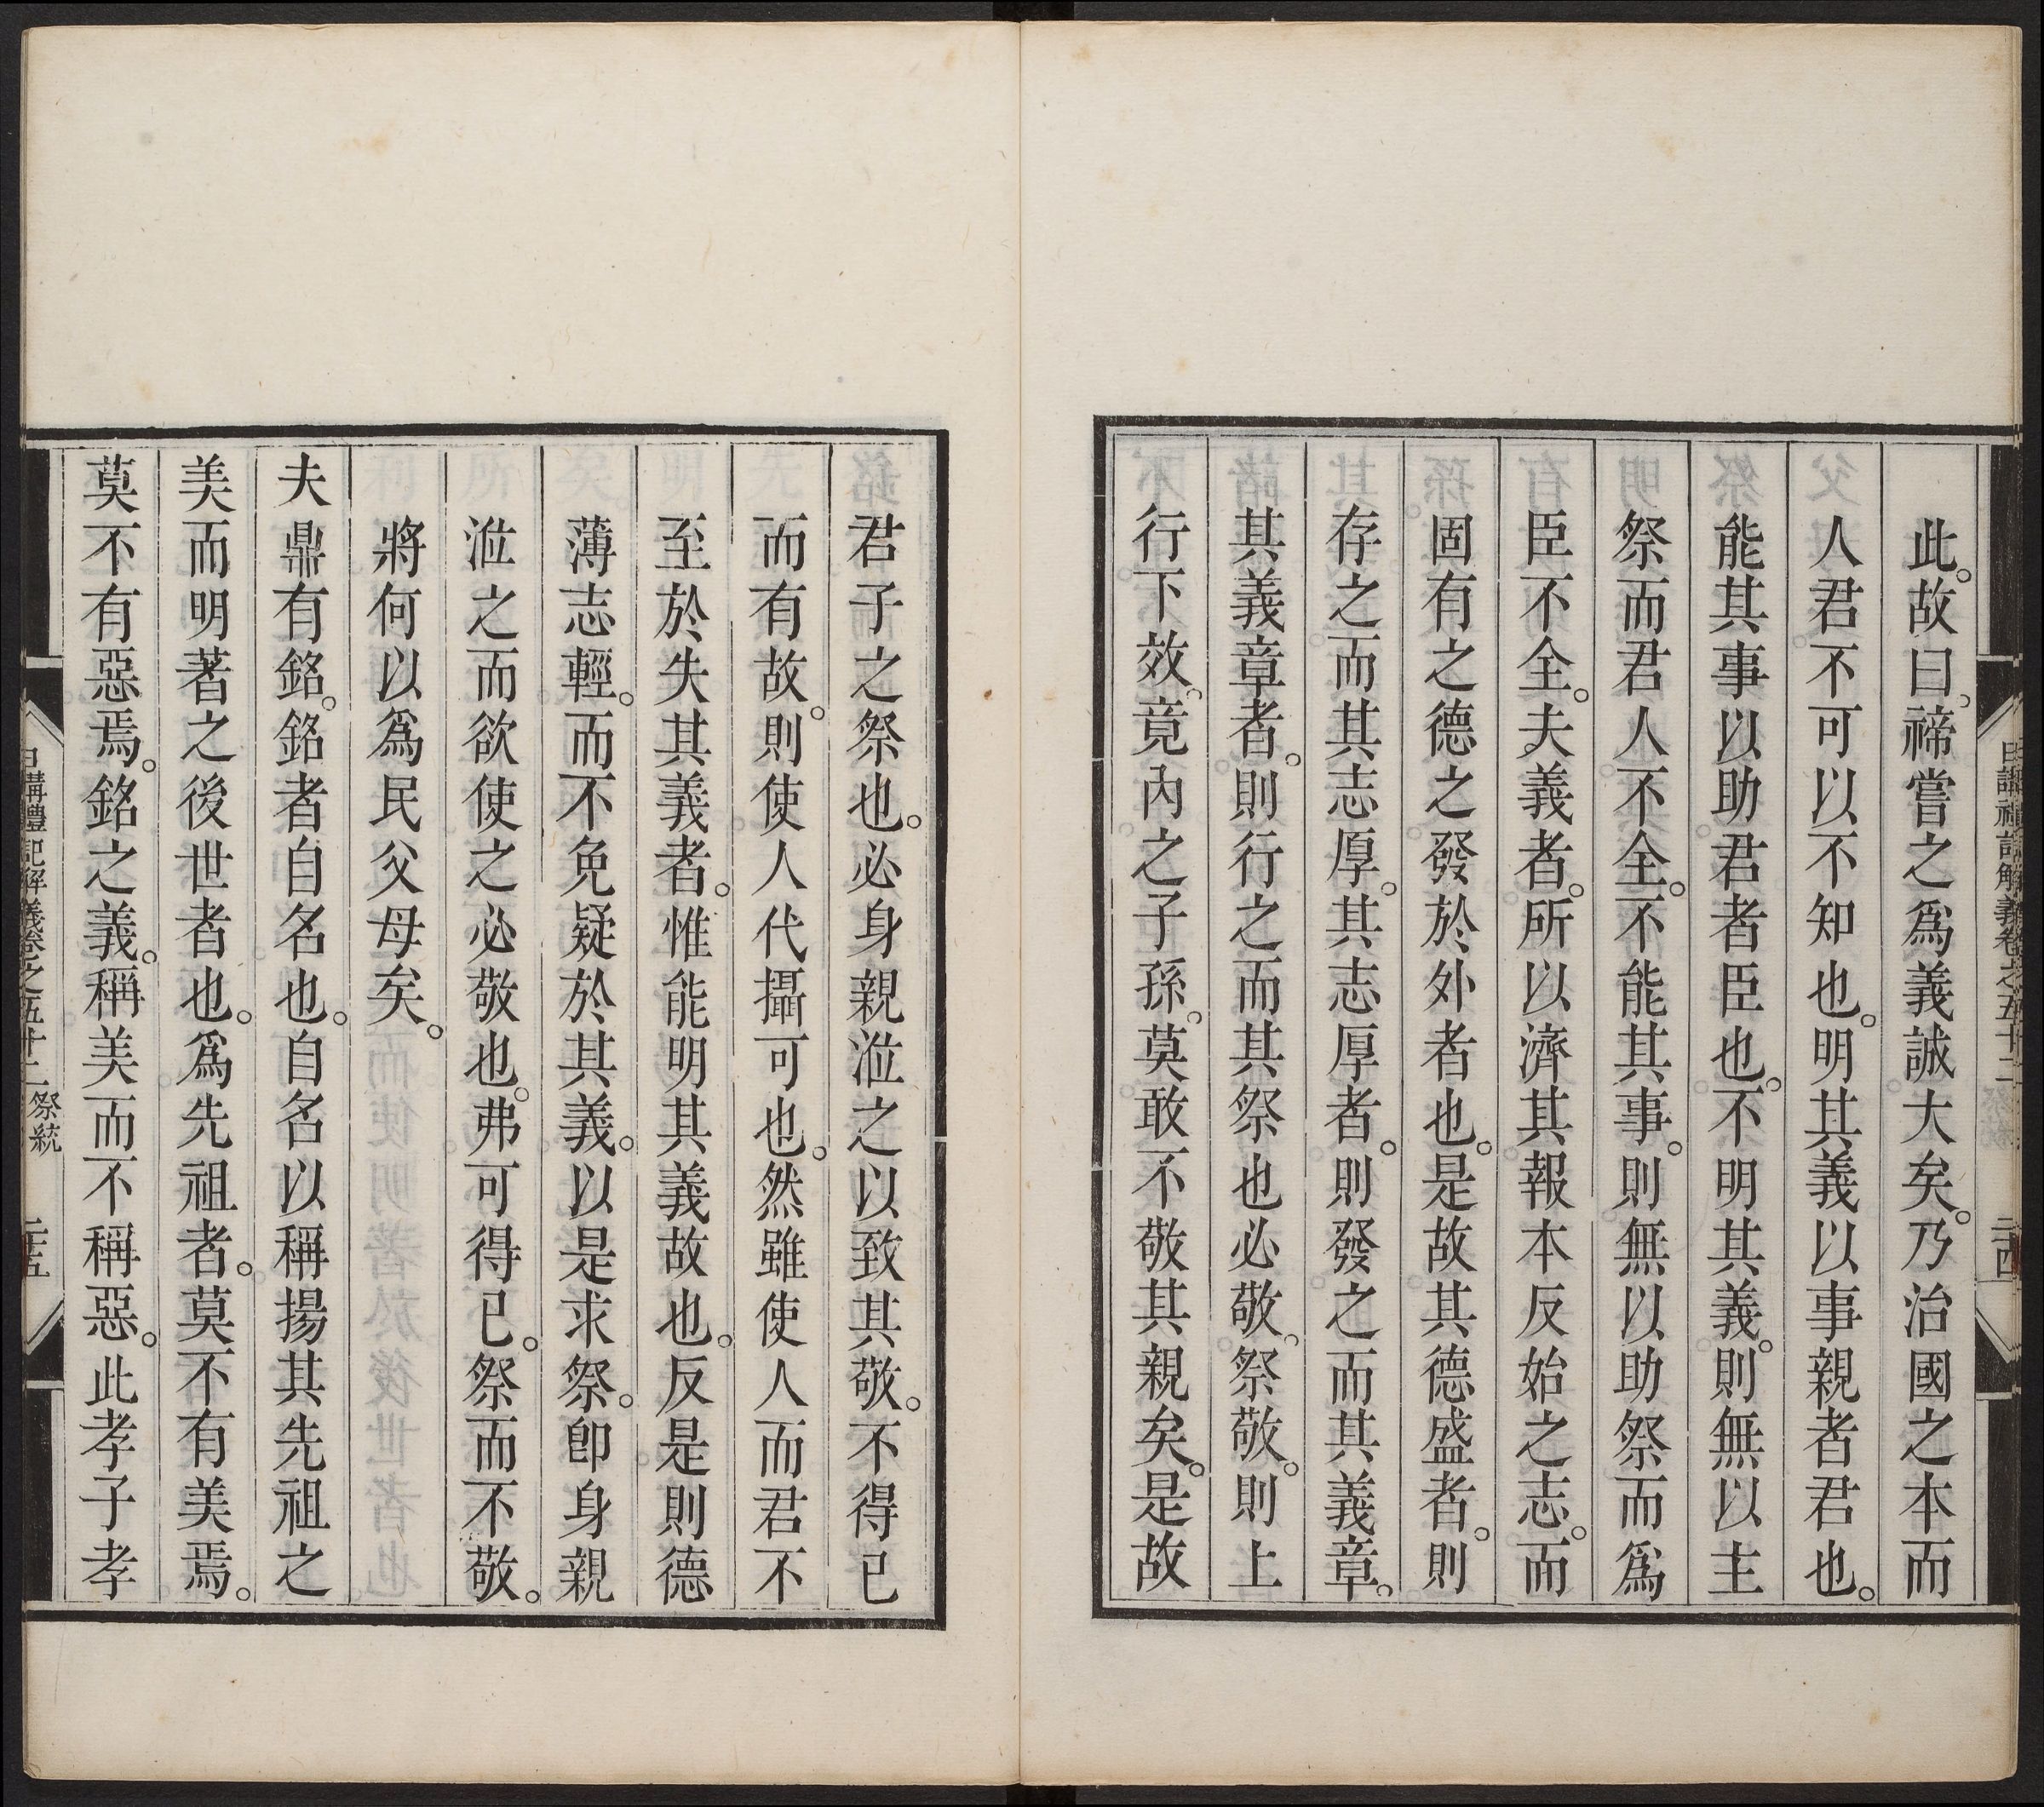 此。故曰。禘嘗之爲義誠大矣。乃治國之本而
人君不可以不知也。明其義以事親者君也。
能其事以助君者臣也。不明其義。則無以主
祭而君人不全。不能其事。則無以助祭而爲
臣不全。夫義者。所以濟其報本反始之志。而
固有之德之發於外者也。是故其德盛者。則
存之而其志厚。其志厚者。則發之而其義章。
其義章者。則行之而其祭也必敬。祭敬。則上
行下效。竟內之子孫。莫敢不敬其親矣。是故
日講禮記解義卷之五十二
二十四
君子之祭也。必身親涖之以致其敬。不得已
而有故。則使人代攝可也。然雖使人而君不
至於失其義者。惟能明其義故也。反是則德
薄志輕。而不免疑於其義。以是求祭。卽身親
涖之而欲使之必敬也。弗可得已。祭而不敬。
將何以爲民父母矣。
夫鼎有銘。銘者自名也。自名以稱揚其先祖之
美而明著之後世者也。爲先祖者。莫不有美焉。
莫不有惡焉。銘之義。稱美而不稱惡。此孝子孝
日講禮記解義卷之五十二 祭統
二十五